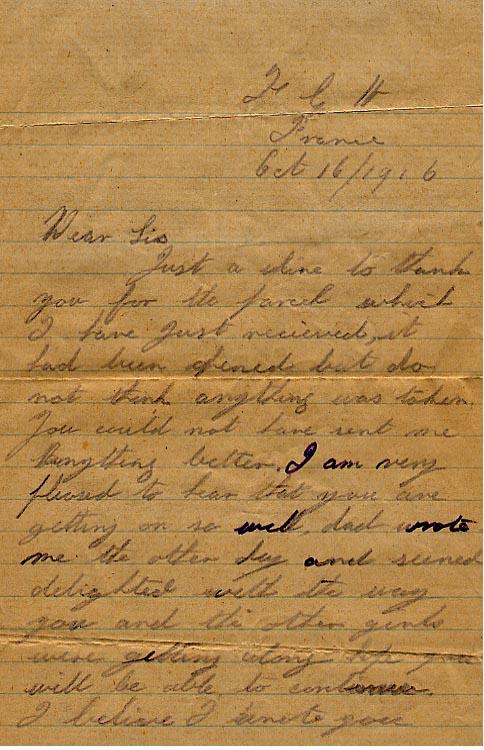 F C H
France
Oct 16/1916
Dear Sis
Just a line to thank
you for the parcel which
I have just recieved, it
had been opened but do
not think anything was taken.
You could not have sent me
anything better. I am very
pleased to hear that you are
getting on so well, dad wrote
me the other day and seemed
delighted with the way
you and the other girls
were getting along hope you
will be able to continue.
I believe I wrote you